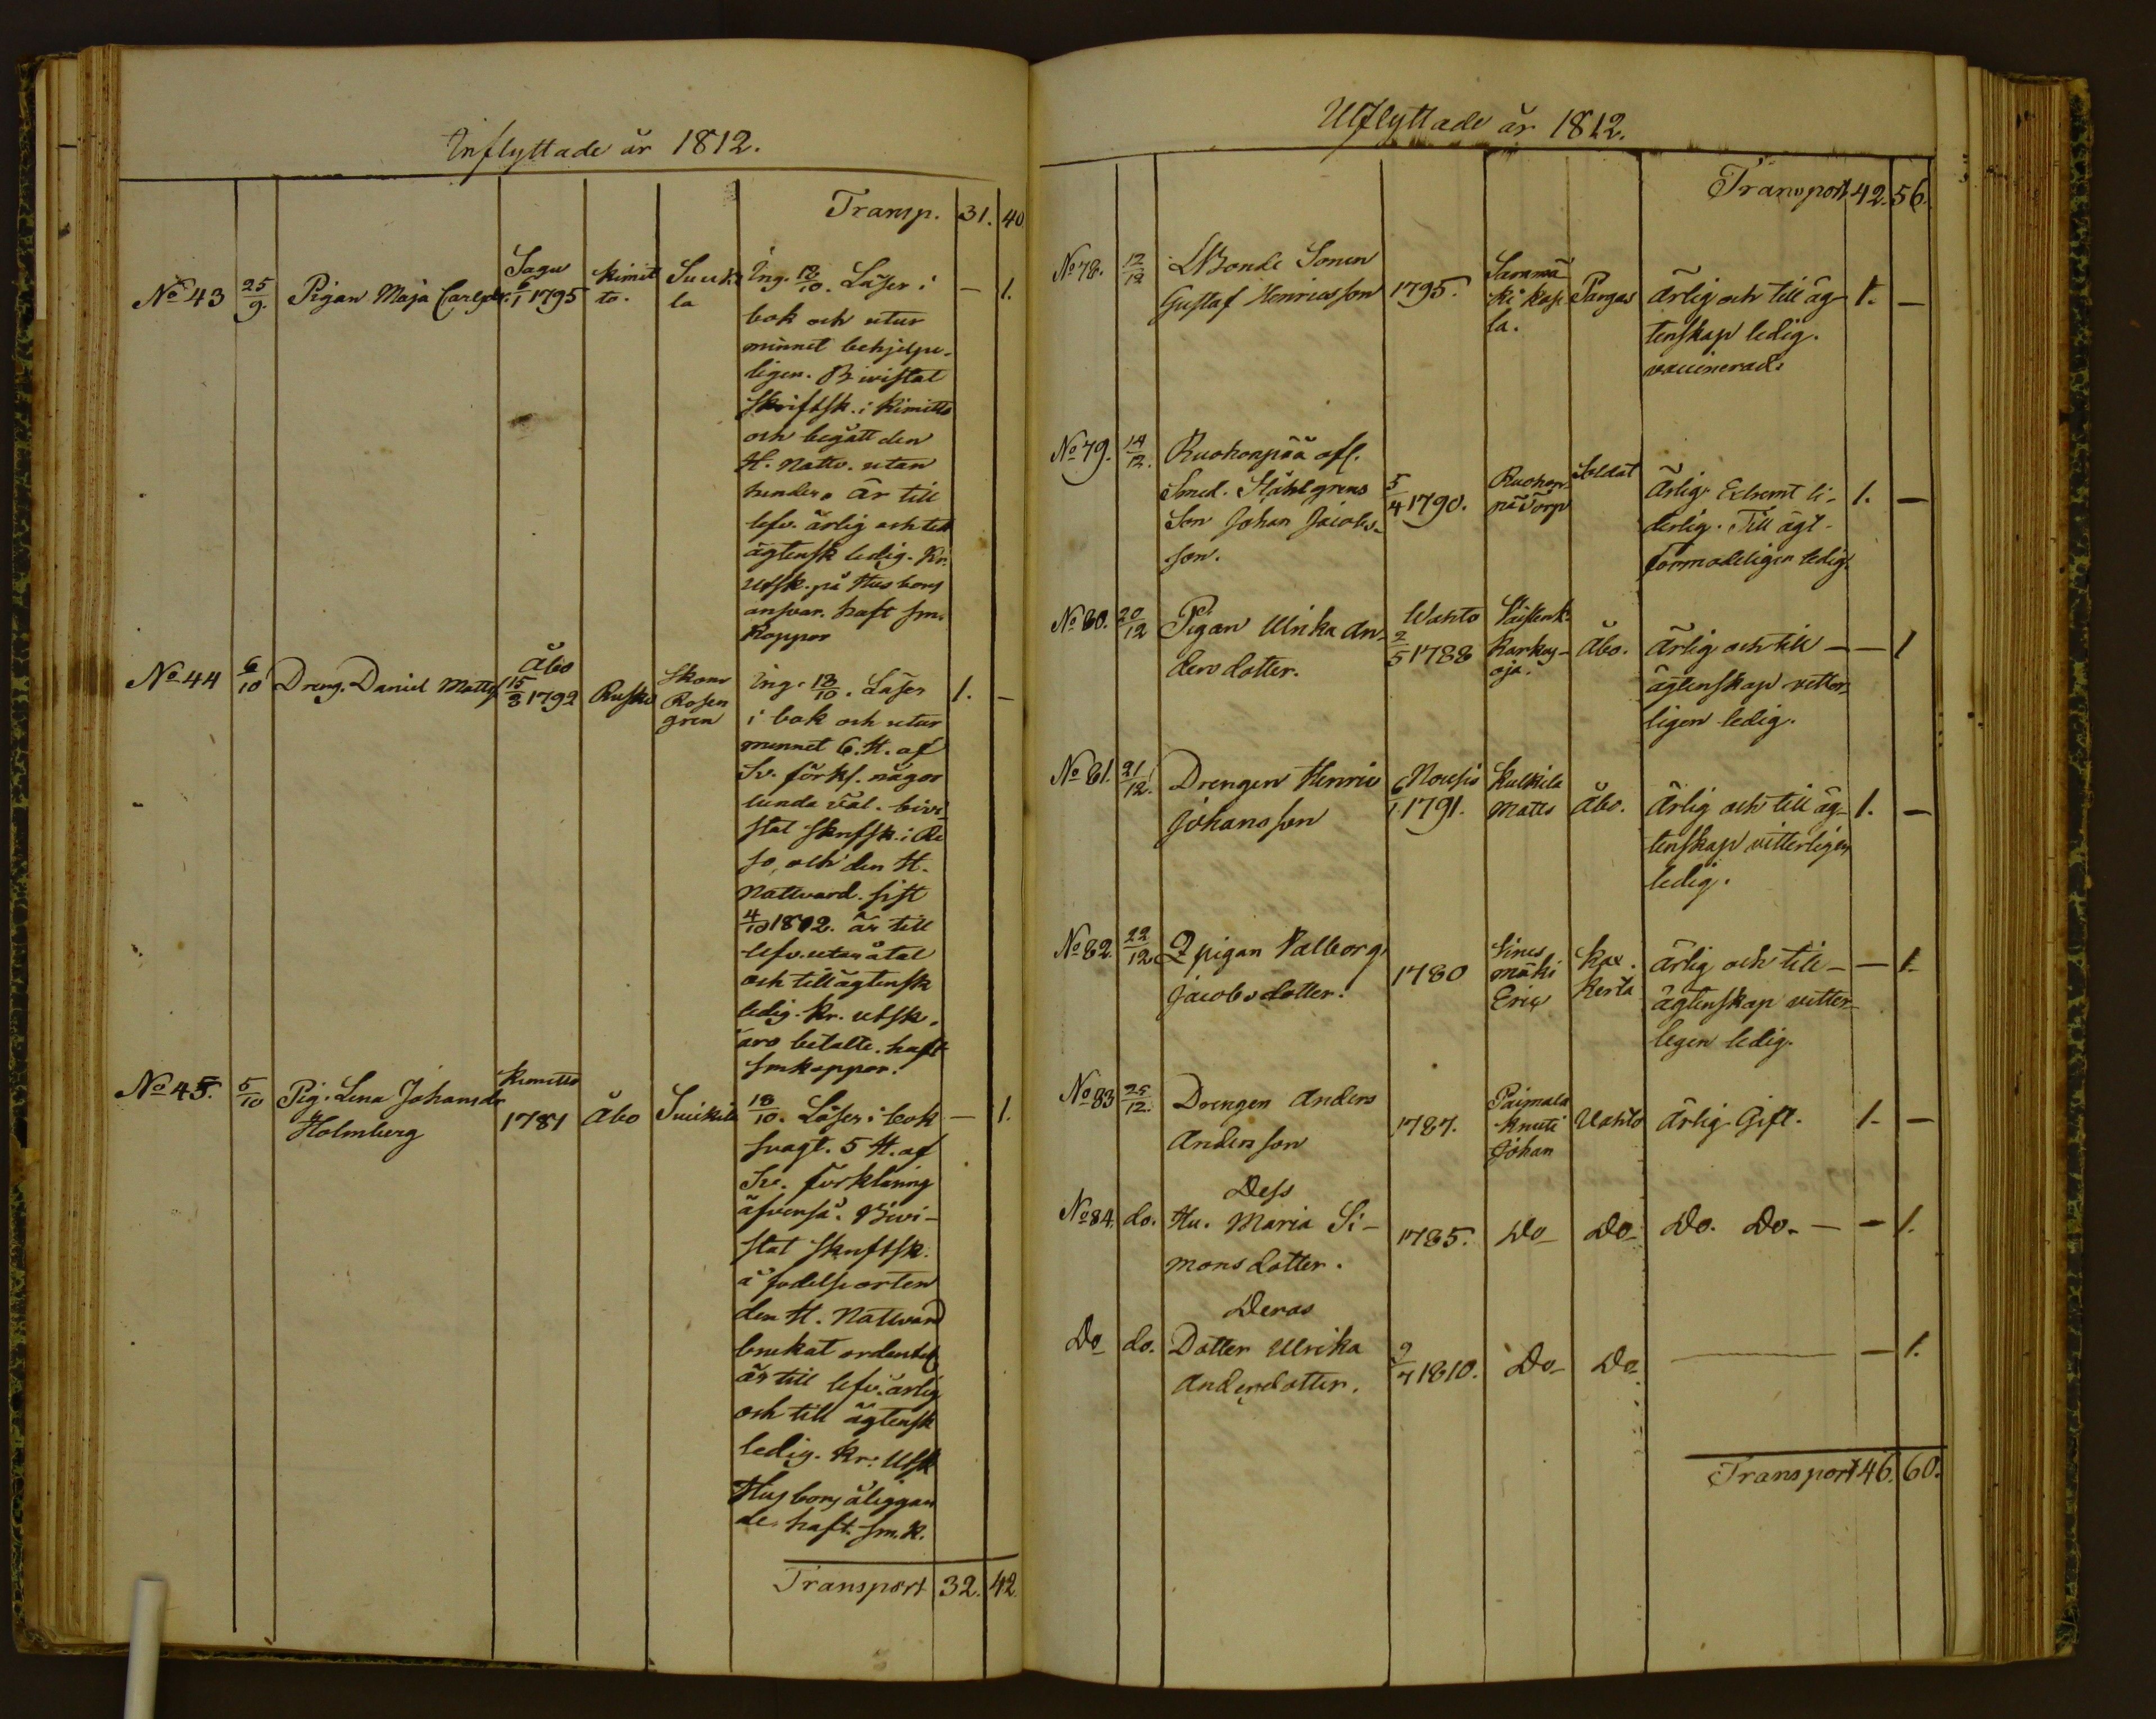 Inflyttade år 1812.
Transp. 31. 40
No 43 25/9. Pigan Maja Carlsdr. Sagu 6/1 1795 Kimit
to. Suuki
la Ing. 12/10. Läser i — 1.
bok och utur
minnet behjelpe-
ligen. Bivistat
Skriftsk. i Kimitto
och begått den
H. Nattv. utan
hinder. är till
lefv. ärlig och till
ägtensk ledig. Kr.
Utsk. på Husbons
ansvar. haft sm.
Koppor
No 44 6/10 Dreng. Daniel Matts Åbo 15/3 1792 Rusko Skom
Rosen
gren Ing. 13/10. Läser 1. —
i bok och utur
minnet 6. H. af
Sv. förkl. någor
lunda väl. bivi
stat skriftsk. i Re
so, och den H.
Nattvard. sist
4/10 1812. är till
lefv. utan åtal
och till ägtensk
ledig. Kr. utsk.
äro betalte. haft
smkoppor.
No 45. 5/10 Pig. Lena Johansdr
Holmberg Kimitto
1781 Åbo Suikila 18/10. Läser i bok — 1.
svagt. 5 H. af
Sv. förklaring
äfvenså. Bivi-
stat skriftsk.
å födelseorten
den H. Nattvard
brukat ordentel.
är till lefv. ärlig
och till ägtensk
ledig. Kr. Utsk
Husbons åliggan
de. haft. sm. K.
Transport 32. 42.
Utflyttade år 1812.
Transport 42. 56.
No 78. 12/12 Bonde Sonen
Gustaf Henricsson 1795. Sammä
ki kap
la. Pargas Ärlig och till äg- 1. —
tenskap ledig.
vaccinerad.
No 79. 14/12. Ruohonpää afl.
Smed. Ståhlgrens
Son Johan Jacobs-
son. 5/4 1790. Ruohon
pä Torp Soldat Ärlig. Extremt li- 1. —
derlig. Till ägt.
förmodeligen ledig.
No 80. 20/12 Pigan Ulrika An-
ders dotter. Wahto
2/5 1788 Karkus-
oja. Åbo. Ärlig och till — — 1
ägtenskap vetter-
ligen ledig.
No 81. 21/12. Drengen Henric
Johansson Nousis
6/1 1791. Kulkila
Matts Åbo. Ärlig och till äg- 1. —
tenskap vitterligen
ledig.
No 82. 22/12 pigan Valborg
Jacobsdotter. 1780 Sinis
mäki
Eric Kax.
Kerta Ärlig och till — — 1.
ägtenskap vetter-
legen ledig.
No 83 25/12. Drengen Anders
Andersson 1787. Paimala
Knuti
Johan Vahto Ärlig. Gift. 1. —
Dess
No 84. do. Hu. Maria Si-
mons dotter. 1785. Do Do Do. Do. — — 1.
Deras
Do do. Dotter Ulrika
Andersdotter. 9/7 1810. Do Do — — 1.
Transport 46. 60.